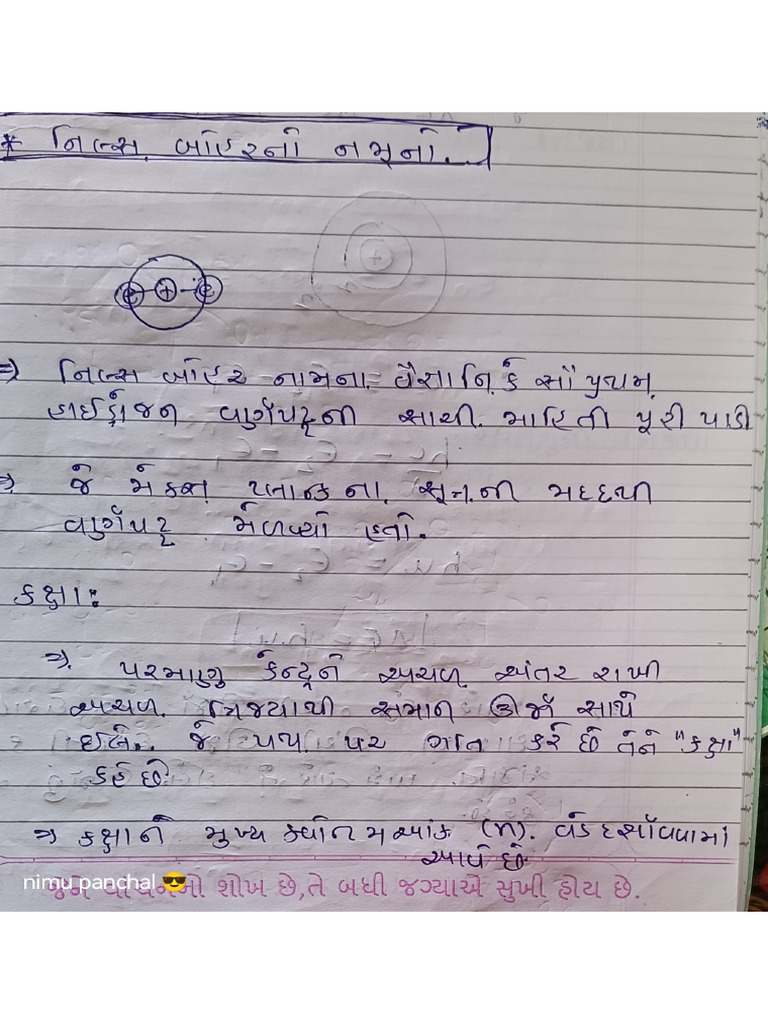 * નિલ્સ બોહરનો નમૂનો.
⇒ નિલ્સ બોહર નામના વૈજ્ઞાનિકે સૌ પ્રથમ
હાઈડ્રોજન વર્ણપટ્ટની સાચી માહિતી પૂરી પાડી
⇒ જે મેક્સ પ્લાન્કના સૂત્રની મદદથી
વર્ણપટ્ટ મેળવ્યો હતો.
કક્ષા:
⇒ પરમાણુ કેન્દ્રને અચળ અંતર રાખી
અચળ ત્રિજ્યાથી સમાન ઊર્જા સાથે
ઈલે. જે પથ પર ગતિ કરે છે તેને "કક્ષા"
કહે છે
⇒ કક્ષાને મુખ્ય ક્વોન્ટમ આંક (n). વડે દર્શાવવામાં
આવે છે
જેને વાંચનનો શોખ છે, તે બધી જગ્યાએ સુખી હોય છે.
nimu panchal 😎